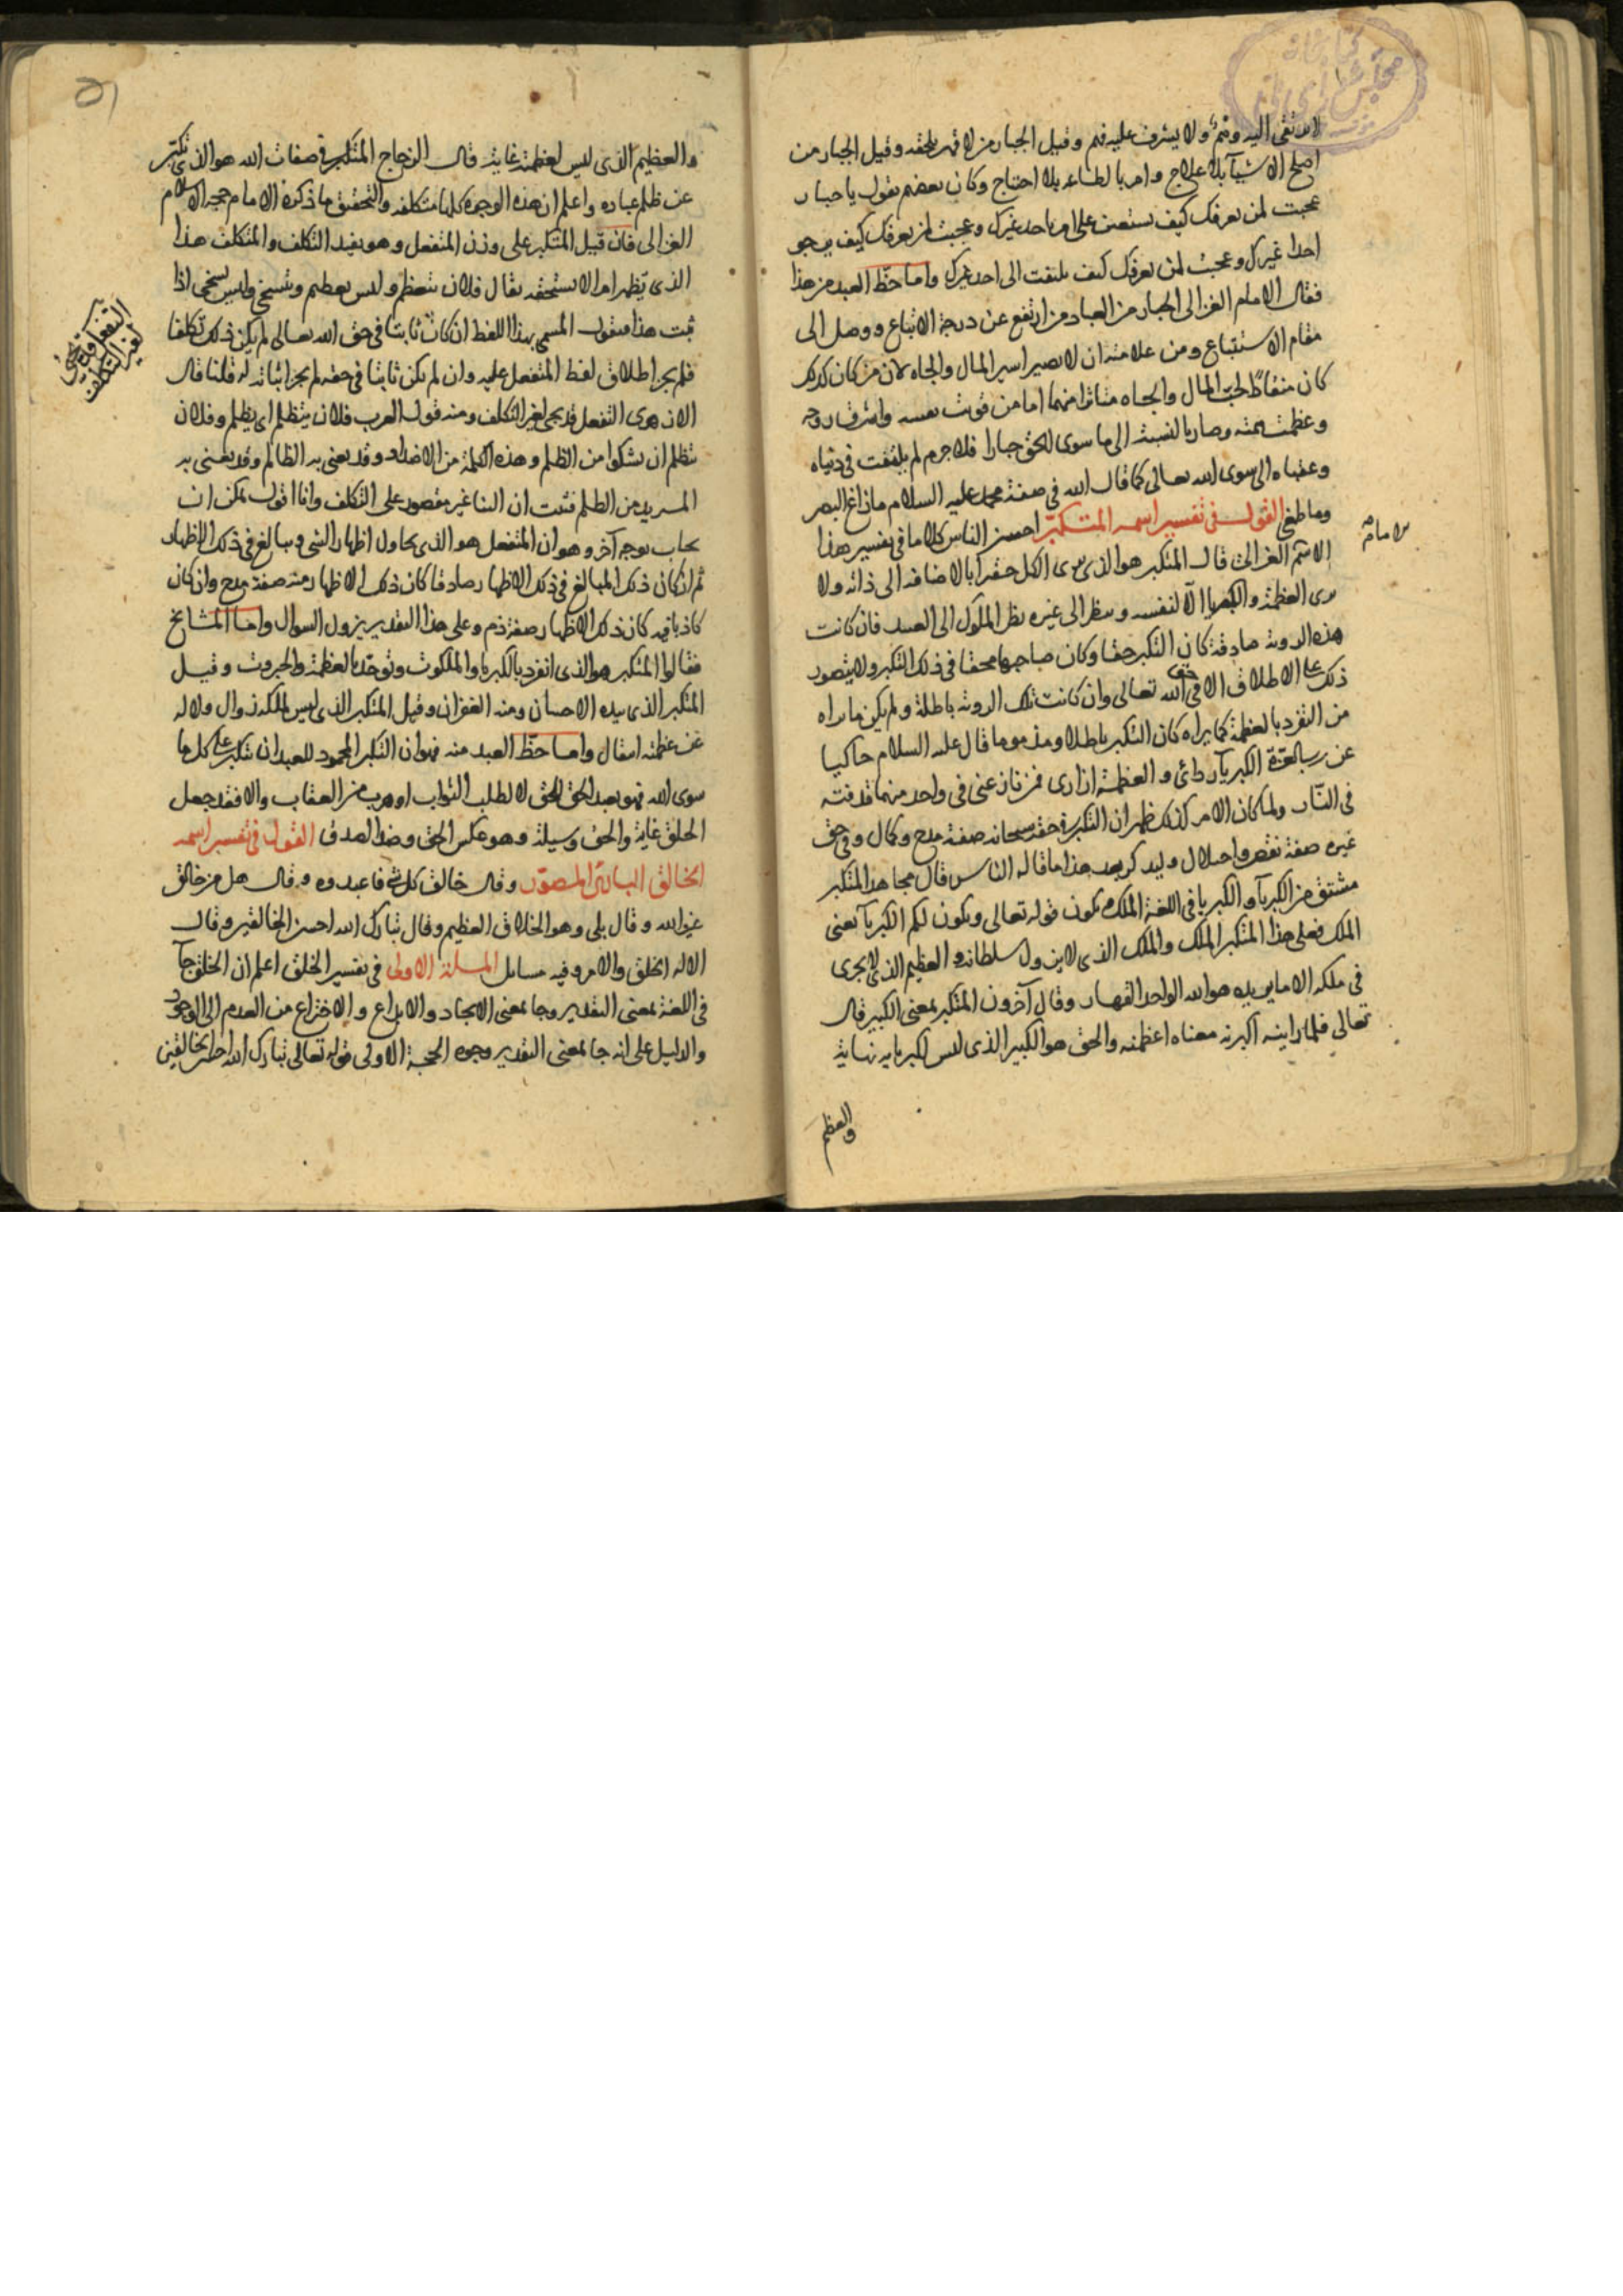 لا يرتقى اليه وهم ولا يشرف عليه فهم وقيل الجبار من لا قهر يلحقه وقيل الجبار من
اصلح الاشيآ بلا علاج وامر بالطاعه بلا احتياج وكان بعضهم يقول يا جبار
عجبت لمن يعرفك كيف يستعين على امره باحد غيرك وعجبت لمن يعرفك كيف يرجو
احدا غيرك وعجبت لمن يعرفك كيف يلتفت الى احد غيرك واما حظ العبد من هذا
فقال الامام الغزالى الجبار من العباد من ارتفع عن درجة الاتباع ووصل الى
مقام الاستتباع ومن علامته ان لا يصير اسير المال والجاه لان من كان كذلك
كان منقادا لحب المال والجاه متاثرا منهما اما من قويت نفسه واشرقت روحه
وعظمت همته وصار بالنسبة الى ما سوى الحق جبارا فلا جرم لم يلتفت فى دنياه
وعقباه الى سوى الله تعالى كما قال الله فى صفة محمد عليه السلام ما زاغ البصر
وما طغى القول فى تفسير اسمه المتكبر احسن الناس كلاما فى تفسير هذا
الامام
الاسم الغزالى قال المتكبر هو الذى يرى الكل حقيرا بالاضافة الى ذاته ولا
يرى العظمة والكبريا الا لنفسه وينظر الى غيره نظر الملوك الى العبيد فان كانت
هذه الروية صادقة كان التكبر حقا وكان صاحبها محقا فى ذلك التكبر ولا يتصور
ذلك على الاطلاق الا فى حق الله تعالى وان كانت تلك الروية باطلة ولم يكن ما يراه
من التفرد بالعظمة كما يراه كان التكبر باطلا ومذموما قال عليه السلام حاكيا
عن رب العزة الكبريآ ردائى والعظمة ازارى فمن نازعنى فى واحد منهما قذفته
فى النار ولما كان الامر كذلك ظهر ان التكبر فى حقه سبحانه صفة مدح وكمال وفى حق
غيره صفة نقص واختلال وليذكر بعد هذا ما قاله الناس قال مجاهد المتكبر
مشتق من الكبريآ والكبريا فى اللغة الملك يكون قوله تعالى وتكون لكم الكبريآ يعنى
الملك فعلى هذا المتكبر الملك والملك الذى لا يزول سلطانه والعظيم الذى لا يجرى
فى ملكه الا ما يريده هو الله الواحد القهار وقال آخرون المتكبر بمعنى الكبير قال
تعالى فلما راينه اكبرنه معناه اعظمنه والحق هو الكبير الذى ليس لكبريايه نهاية
والعظيم
والعظيم الذى ليس لعظمته غاية قال الزجاج المتكبر فى صفات الله هو الذى تكبر
عن ظلم عباده واعلم ان هذه الوجوه كلها متكلفه والتحقيق ما ذكره الامام حجة الاسلام
الغزالى فان قيل المتكبر على وزن المتفعل وهو يفيد التكلف والمتكلف هذا
الذى يظهر امرا لا يستحقه يقال فلان يتعظم وليس بعظيم ويتسخى وليس بسخى اذا
ثبت هذا فنقول المسمى بهذا اللفظ ان كان ثابتا فى حق الله تعالى لم يكن ذلك تكلفا
فلم يجز اطلاق لفظ المتفعل عليه وان لم يكن ثابتا فى حقه لم يجز اثباته له قلنا قال
التفعل قد يجئ
لغير التكلف
الازهرى التفعل قد يجى لغير التكلف ومنه قول العرب فلان يتظلم اى يظلم وفلان
يتظلم ان يشكوا من الظلم وهذه الكلمة من الاضداد وقد يعنى به الظالم وقد يعنى به
من الظلم فثبت ان البنا غير مقصور على التكلف وانا اقول يمكن ان
يجاب بوجه آخر وهو ان المتفعل هو الذى يحاول اظهار الشى ويبالغ فى ذلك الاظهار
ثم ان كان ذلك المبالغ فى ذلك الاظهار صادقا كان ذلك الاظهار منه صفة مدح وان كان
كاذبا فيه كان ذلك الاظهار صفة ذم وعلى هذا التقدير يزول السوال واما المشايخ
فقالوا المتكبر هو الذى انفرد بالكبريا والملكوت وتوحد بالعظمة والجبروت وقيل
المتكبر الذى بيده الاحسان ومنه الغفران وقيل المتكبر الذى ليس لملكه زوال ولا له
عن عظمته انتقال واما حظ العبد منه فهو ان التكبر المحمود للعبد ان يتكبر على كل ما
سوى الله فهو يعبد الحق للحق لا لطلب الثواب او هرب من العقاب والا فقد جعل
الخلق غاية والحق وسيلة وهو عكس الحق وضد الصدق القول فى تفسير اسمه
الخالق البارئ المصور وقال خالق كل شى فاعبدوه وقال هل من خالق
غير الله وقال بلى وهو الخلاق العظيم وقال تبارك الله احسن الخالقين وقال
الا له الخلق والامر وفيه مسايل المسئلة الاولى فى تفسير الخلق اعلم ان الخلق جآ
فى اللغة بمعنى التقدير وجا بمعنى الايجاد والابداع والاختراع من العدم الى الوجود
والدليل على انه جا بمعنى التقدير وجوه الحجة الاولى قوله تعالى تبارك الله احسن الخالقين